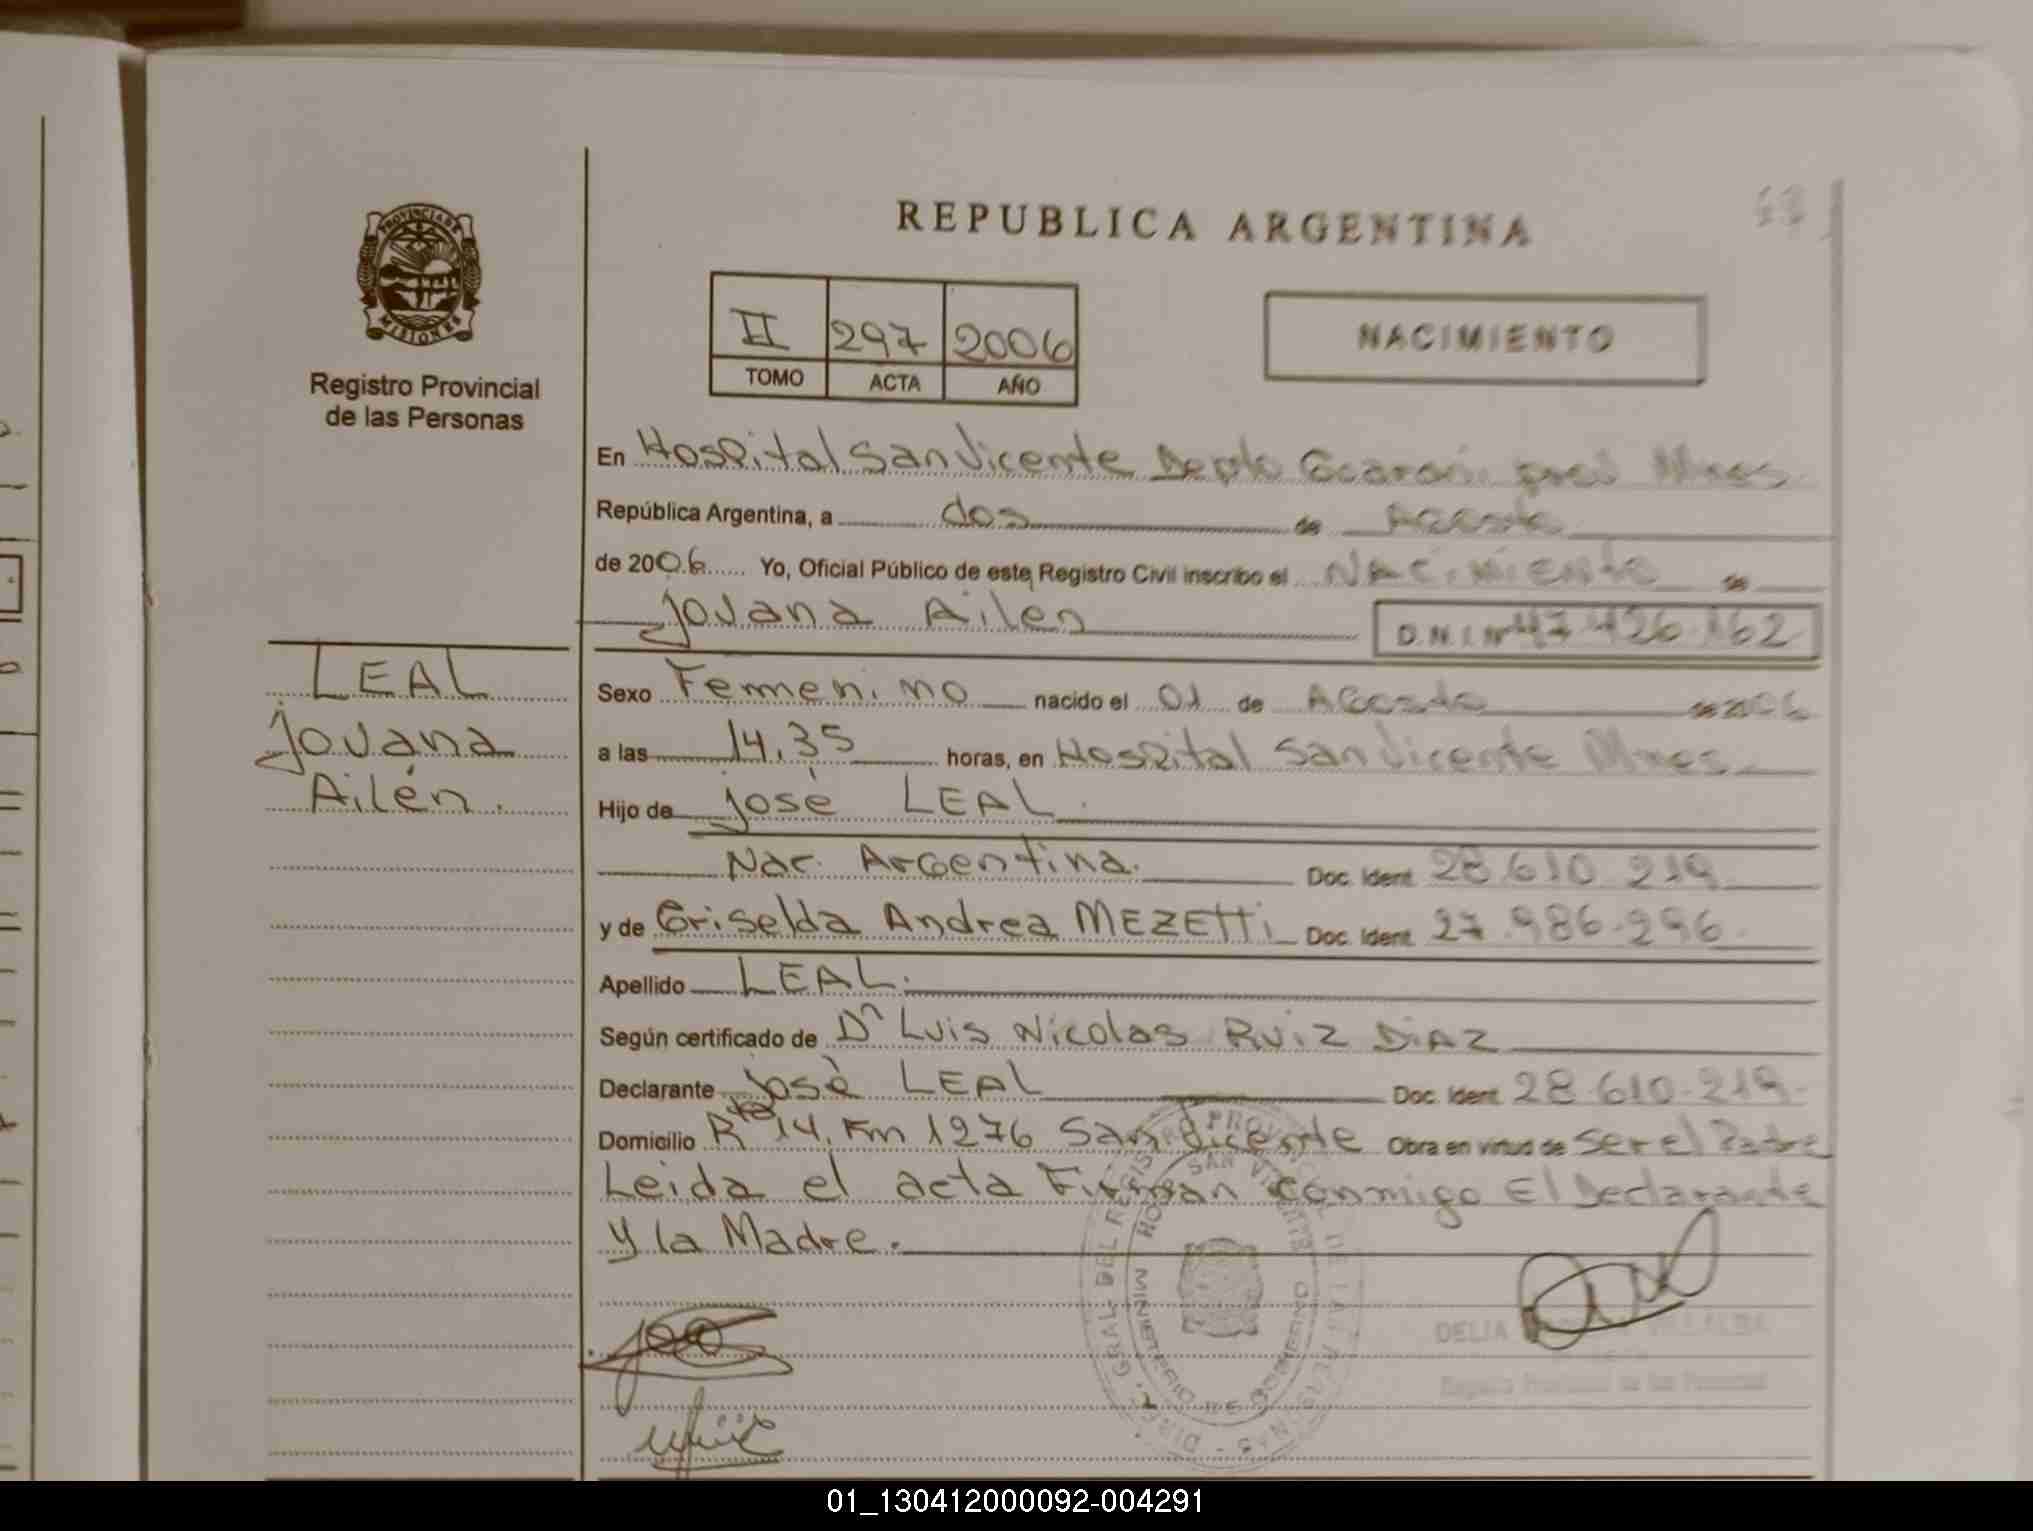 REPUBLICA ARGENTINA
PROVINCIA DE
MISIONES
Registro Provincial
de las Personas
II 297 2006
TOMO ACTA AÑO
NACIMIENTO
En Hospital San Vicente Depto Guaraní prov Mnes.
República Argentina, a dos de Agosto
de 2006 Yo, Oficial Público de este Registro Civil inscribo el Nacimiento de
Jovana Ailen D.N.I. Nº 47.426.162
LEAL
Jovana
Ailén.
Sexo Femenino nacido el 01 de Agosto de 2006
a las 14,35 horas, en Hospital San Vicente Mnes.
Hijo de José LEAL.
Nac. Argentina. Doc. Ident. 28.610.219
y de Griselda Andrea MEZETTi Doc. Ident. 27.986.296.
Apellido LEAL.
Según certificado de Dr Luis Nicolas Ruiz Diaz
Declarante José LEAL Doc. Ident. 28.610.219.
Domicilio Rta 14, Km 1276 San Vicente Obra en virtud de ser el Padre
Leida el acta Firman conmigo El Declarante
y la Madre.
DELIA VILLALBA
Registro Provincial de las Personas
01_130412000092-004291